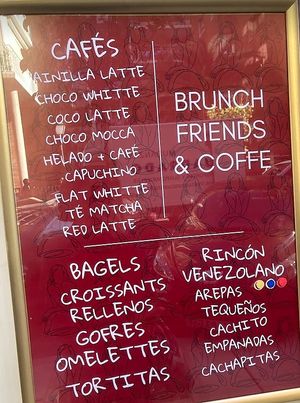 CAFÉS
VAINILLA LATTE
CHOCO WHITTE
COCO LATTE
CHOCO MOCCA
HELADO + CAFÉ
CAPUCHINO
FLAT WHITTE
TÉ MATCHA
RED LATTE
BRUNCH
FRIENDS
& COFFE
BAGELS
CROISSANTS
RELLENOS
GOFRES
OMELETTES
TORTITAS
RINCÓN
VENEZOLANO
AREPAS
TEQUEÑOS
CACHITO
EMPANADAS
CACHAPITAS